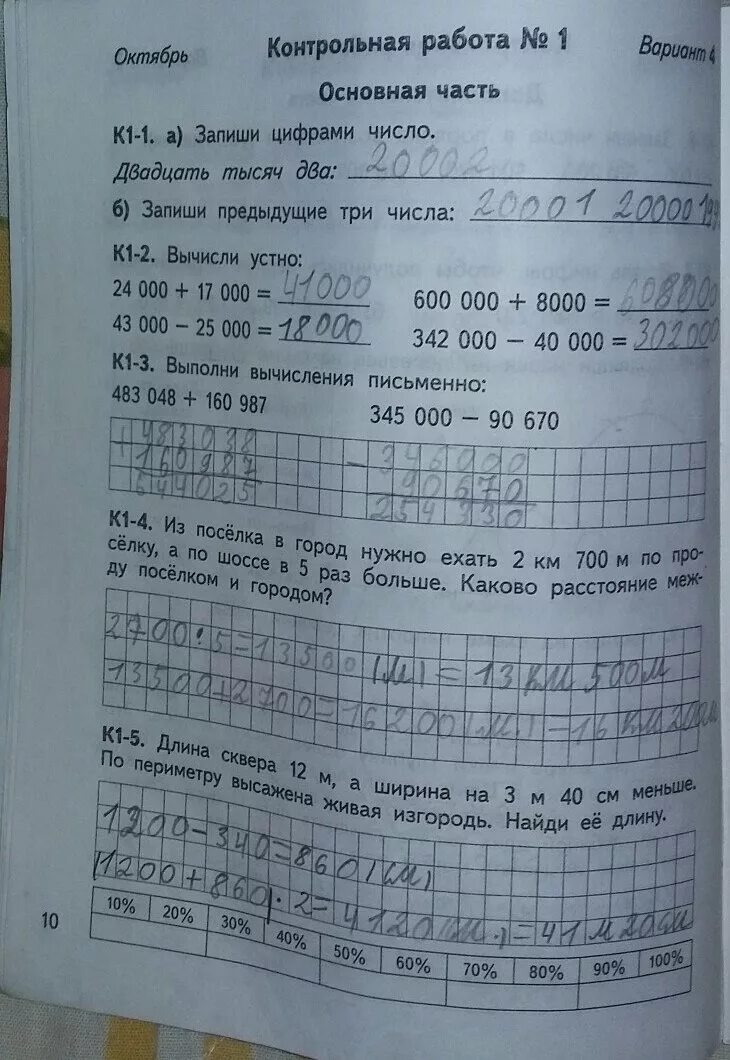 Октябрь Контрольная работа № 1 Вариант 4
Основная часть
К1-1. а) Запиши цифрами число.
Двадцать тысяч два: 20002
б) Запиши предыдущие три числа: 20001 20000
К1-2. Вычисли устно:
24 000 + 17 000 = 41000 600 000 + 8000 = 608000
43 000 − 25 000 = 18000 342 000 − 40 000 = 302000
К1-3. Выполни вычисления письменно:
483 048 + 160 987 345 000 − 90 670
+483038 − 345000
160987 90670
644025 254330
К1-4. Из посёлка в город нужно ехать 2 км 700 м по про-
сёлку, а по шоссе в 5 раз больше. Каково расстояние меж-
ду посёлком и городом?
2700·5=13500(м)=13 км 500м
13500+2700=16200(м)=16 км 200м
К1-5. Длина сквера 12 м, а ширина на 3 м 40 см меньше.
По периметру высажена живая изгородь. Найди её длину.
1200−340=860(см)
(1200+860)·2=4120(см.)=41 м 20см
10% 20% 30% 40% 50% 60% 70% 80% 90% 100%
10